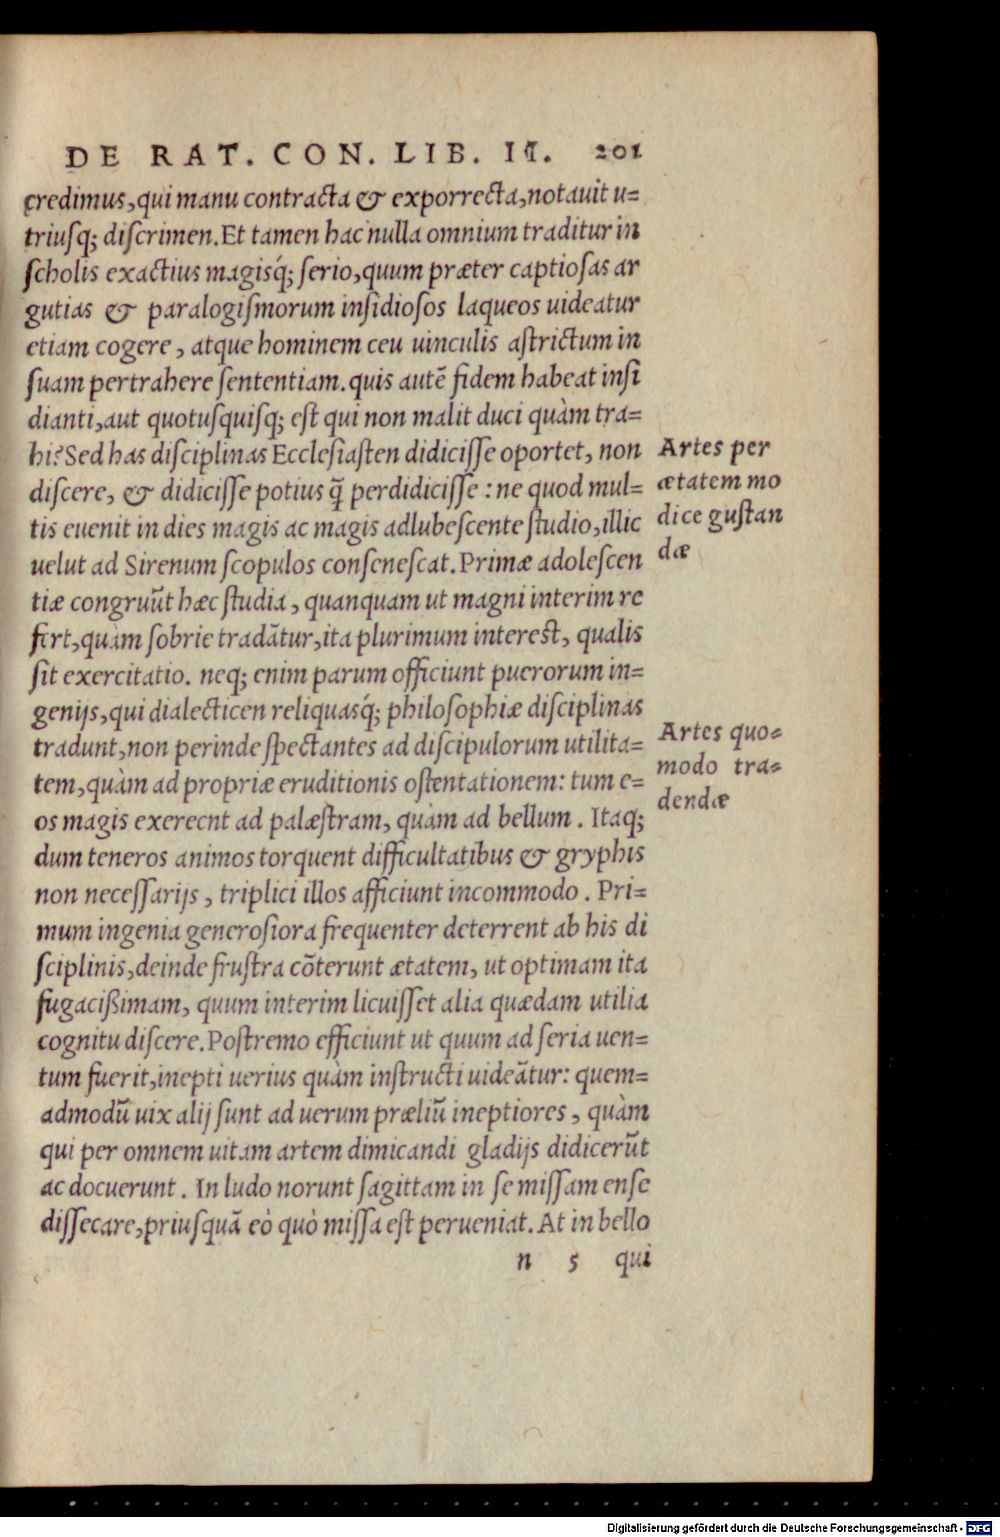 DE RAT. CON. LIB. II. 201
credimus, qui manu contracta & exporrecta, notauit u=
triusq; discrimen. Et tamen hac nulla omnium traditur in
scholis exactius magisq́; serio, quum præter captiosas ar
gutias & paralogismorum insidiosos laqueos uideatur
etiam cogere, atque hominem ceu uinculis astrictum in
suam pertrahere sententiam. quis autẽ fidem habeat insi
dianti, aut quotusquisq; est qui non malit duci quàm tra=
hi? Sed has disciplinas Ecclesiasten didicisse oportet, non
discere, & didicisse potius q̃ perdidicisse : ne quod mul=
tis euenit in dies magis ac magis adlubescente studio, illic
uelut ad Sirenum scopulos consenescat. Primæ adolescen
tiæ congruũt hæc studia, quanquam ut magni interim re
fert, quàm sobrie tradãtur, ita plurimum interest, qualis
sit exercitatio. neq; enim parum officiunt puerorum in=
genijs, qui dialecticen reliquasq́; philosophiæ disciplinas
tradunt, non perinde spectantes ad discipulorum utilita=
tem, quàm ad propriæ eruditionis ostentationem: tum e=
os magis exercent ad palæstram, quàm ad bellum. Itaq;
dum teneros animos torquent difficultatibus & gryphis
non necessarijs, triplici illos afficiunt incommodo. Pri=
mum ingenia generosiora frequenter deterrent ab his di
sciplinis, deinde frustra cõterunt ætatem, ut optimam ita
fugacißimam, quum interim licuisset alia quædam utilia
cognitu discere. Postremo efficiunt ut quum ad seria uen=
tum fuerit, inepti uerius quàm instructi uideãtur: quem=
admodũ uix alij sunt ad uerum præliũ ineptiores, quàm
qui per omnem uitam artem dimicandi gladijs didicerũt
ac docuerunt. In ludo norunt sagittam in se missam ense
dissecare, priusquã eò quò missa est perueniat. At in bello
n 5 qui
Artes per
ætatem mo
dice gustan
dæ
Artes quo=
modo tra=
dendæ
Digitalisierung gefördert durch die Deutsche Forschungsgemeinschaft - DFG